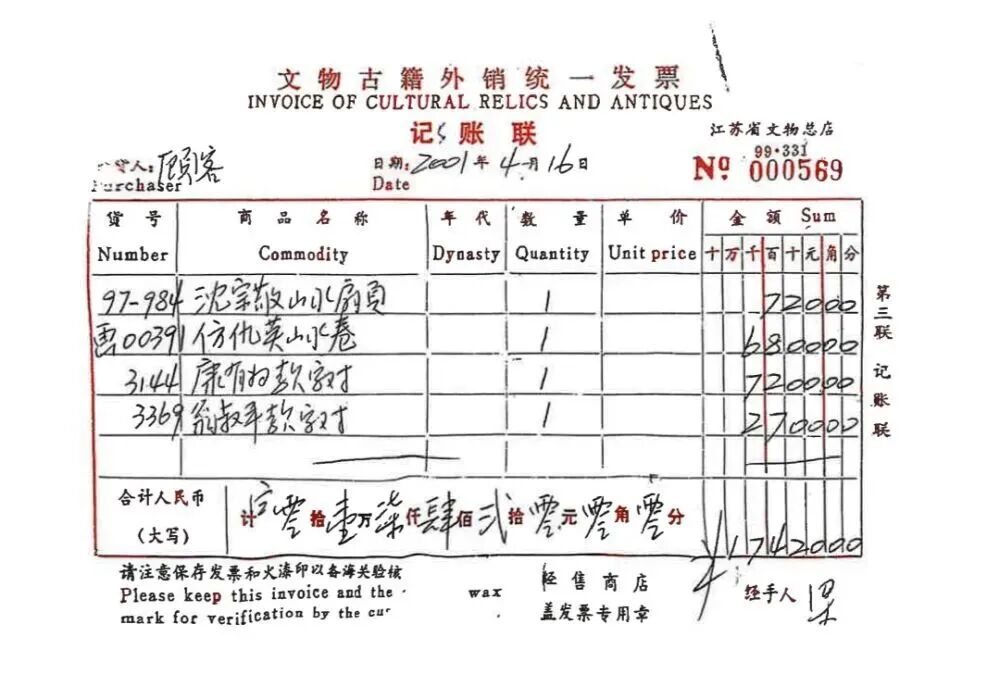 文物古籍外销统一发票
INVOICE OF CULTURAL RELICS AND ANTIQUES
记账联
江苏省文物总店
99·331
人: 顾客 日期: 2001年4月16日 Nº 000569
Purchaser Date
货号 商品名称 年代 数量 单价 金额 Sum
Number Commodity Dynasty Quantity Unit price 十万千百十元角分
97-984 沈宗敬山水扇頁 1 72000
画00391 仿仇英山水卷 1 680000
3144 康有为款字对 1 720000
3369 翁叔平款字对 1 270000
合计人民币
(大写)
计零拾壹万柒仟肆佰贰拾零元零角零分 ¥1742000
第三联 记账联
请注意保存发票和火漆印以备海关验核 经售商店 经手人
Please keep this invoice and the wax
mark for verification by the cu 盖发票专用章